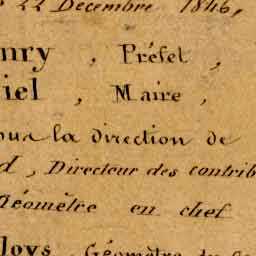 22 Décembre 1846,
nry, Préfet,
iel, Maire,
ous la direction de
d, Directeur des contrib
Géomètre en chef
loys, Géomètre du